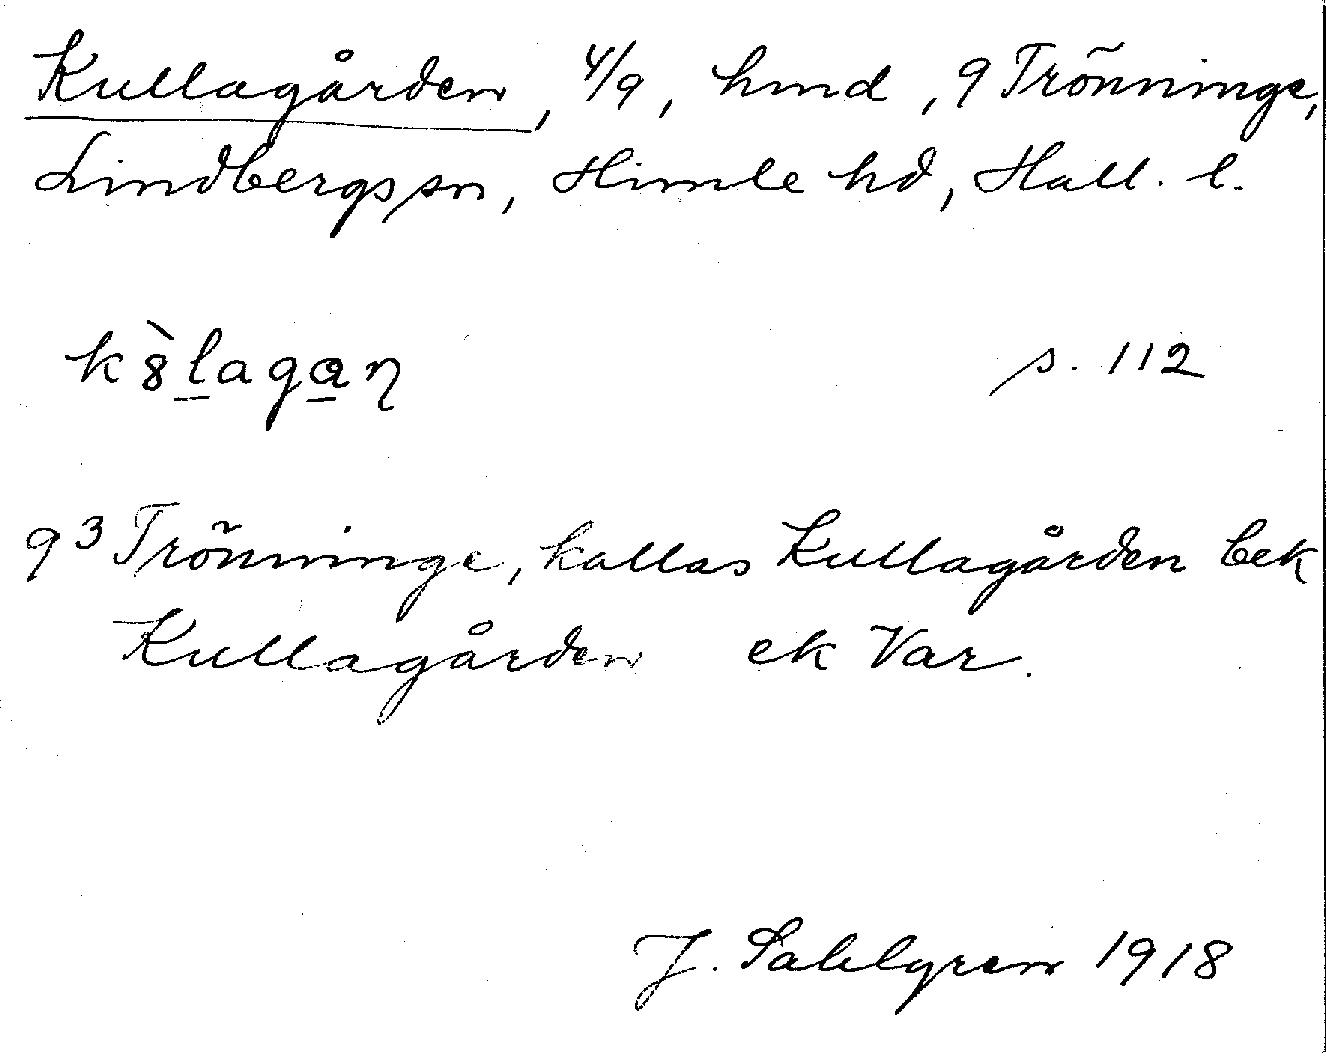 Kullagården, 4/9, hmd, 9 Trönninge,
Lindbergs sn, Himle hd, Hall. l.
s. 112
9³ Trönninge, kallas Kullagården bek
Kullagården ek Var.
J. Sahlgren 1918